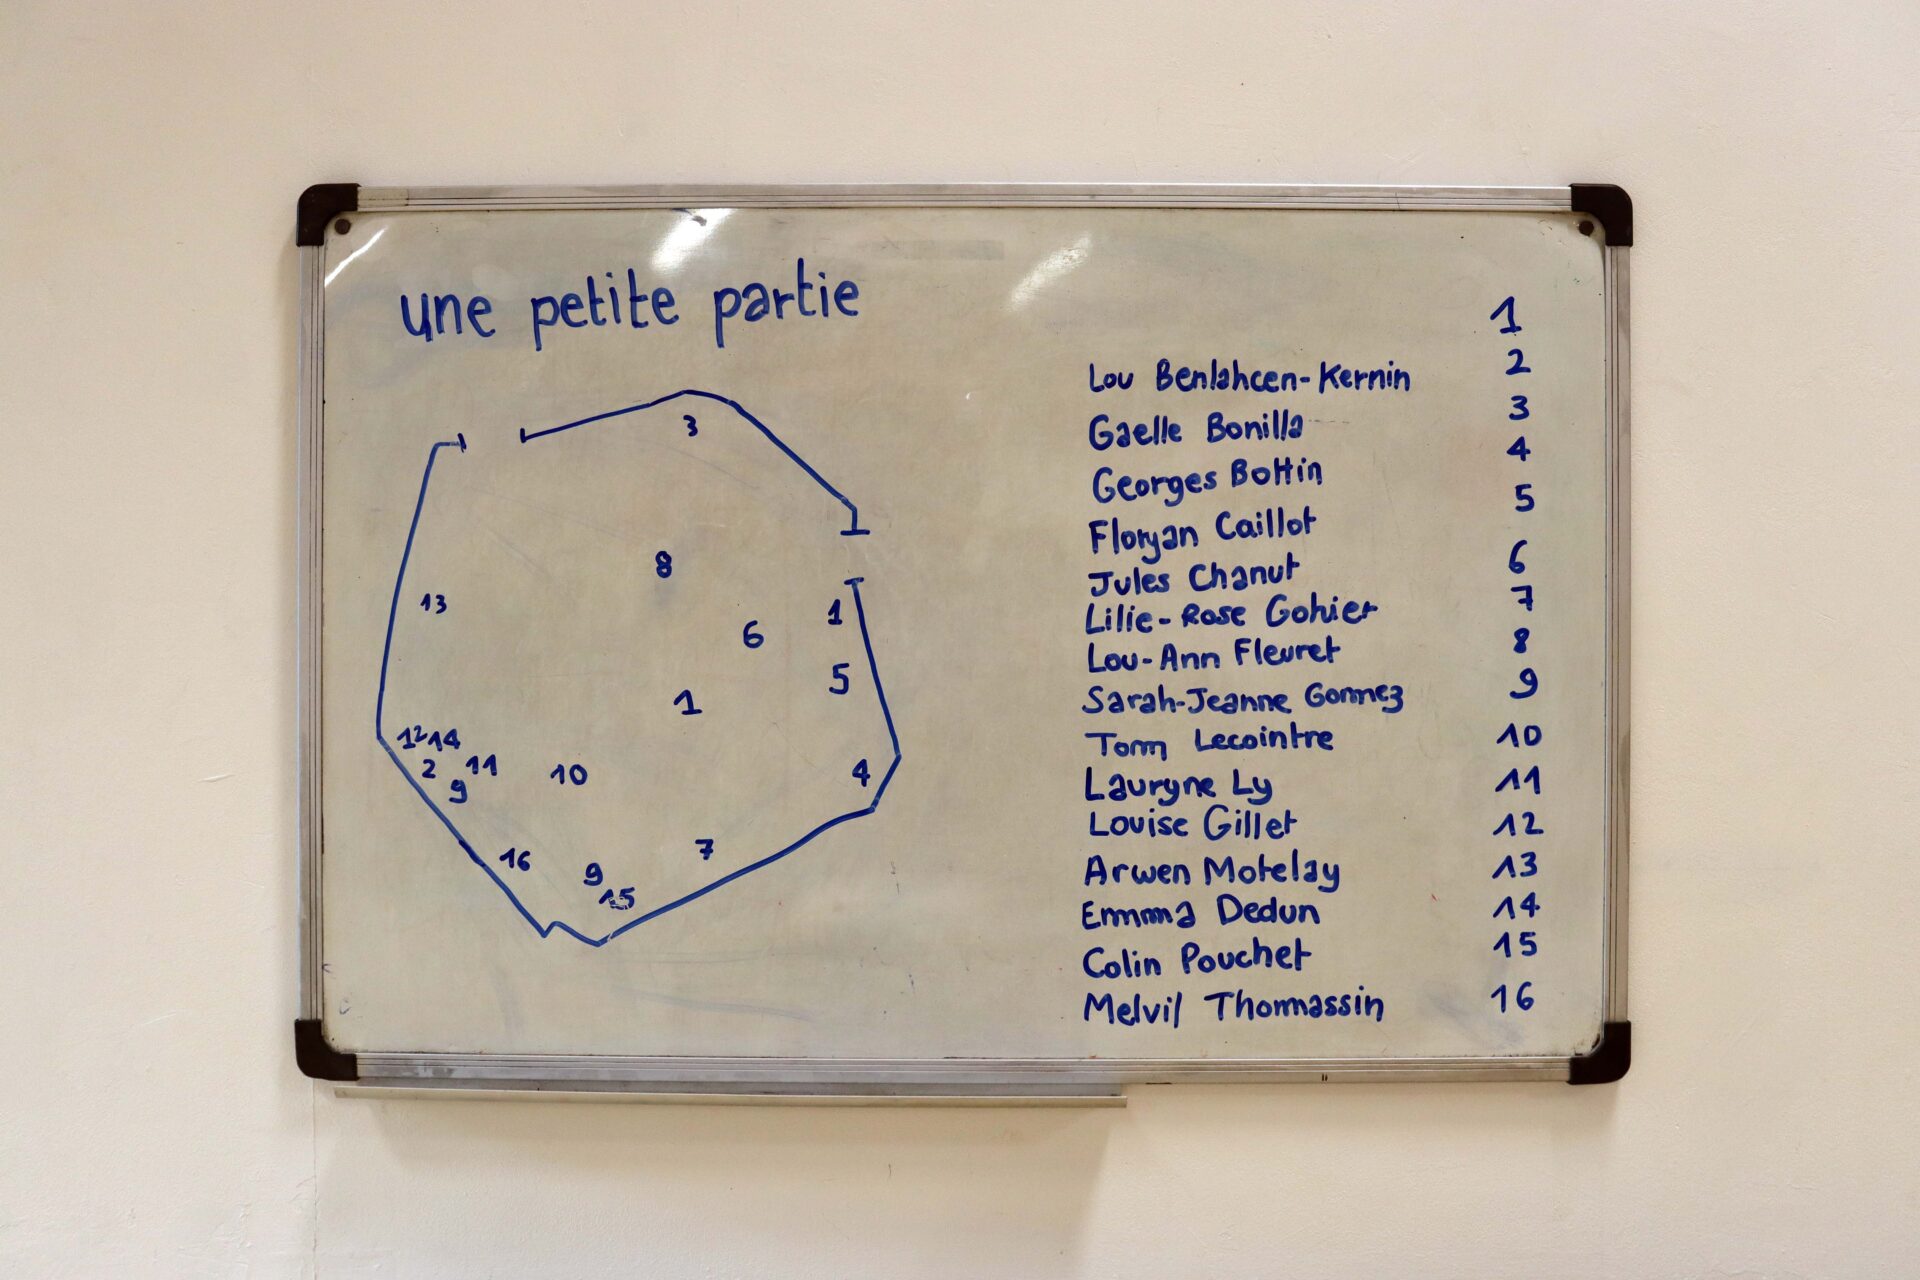 une petite partie
1
Lou Benlahcen-Kernin 2
Gaelle Bonilla 3
Georges Bottin 4
Floryan Caillot 5
Jules Chanut 6
Lilie-Rose Gohier 7
Lou-Ann Fleuret 8
Sarah-Jeanne Gommez 9
Tom Lecointre 10
Lauryne Ly 11
Louise Gillet 12
Arwen Motelay 13
Emma Dedun 14
Colin Pouchet 15
Melvil Thomassin 16
3
8
13
1
6
5
1
12 14
2 11 10 4
9
7
16 9
15